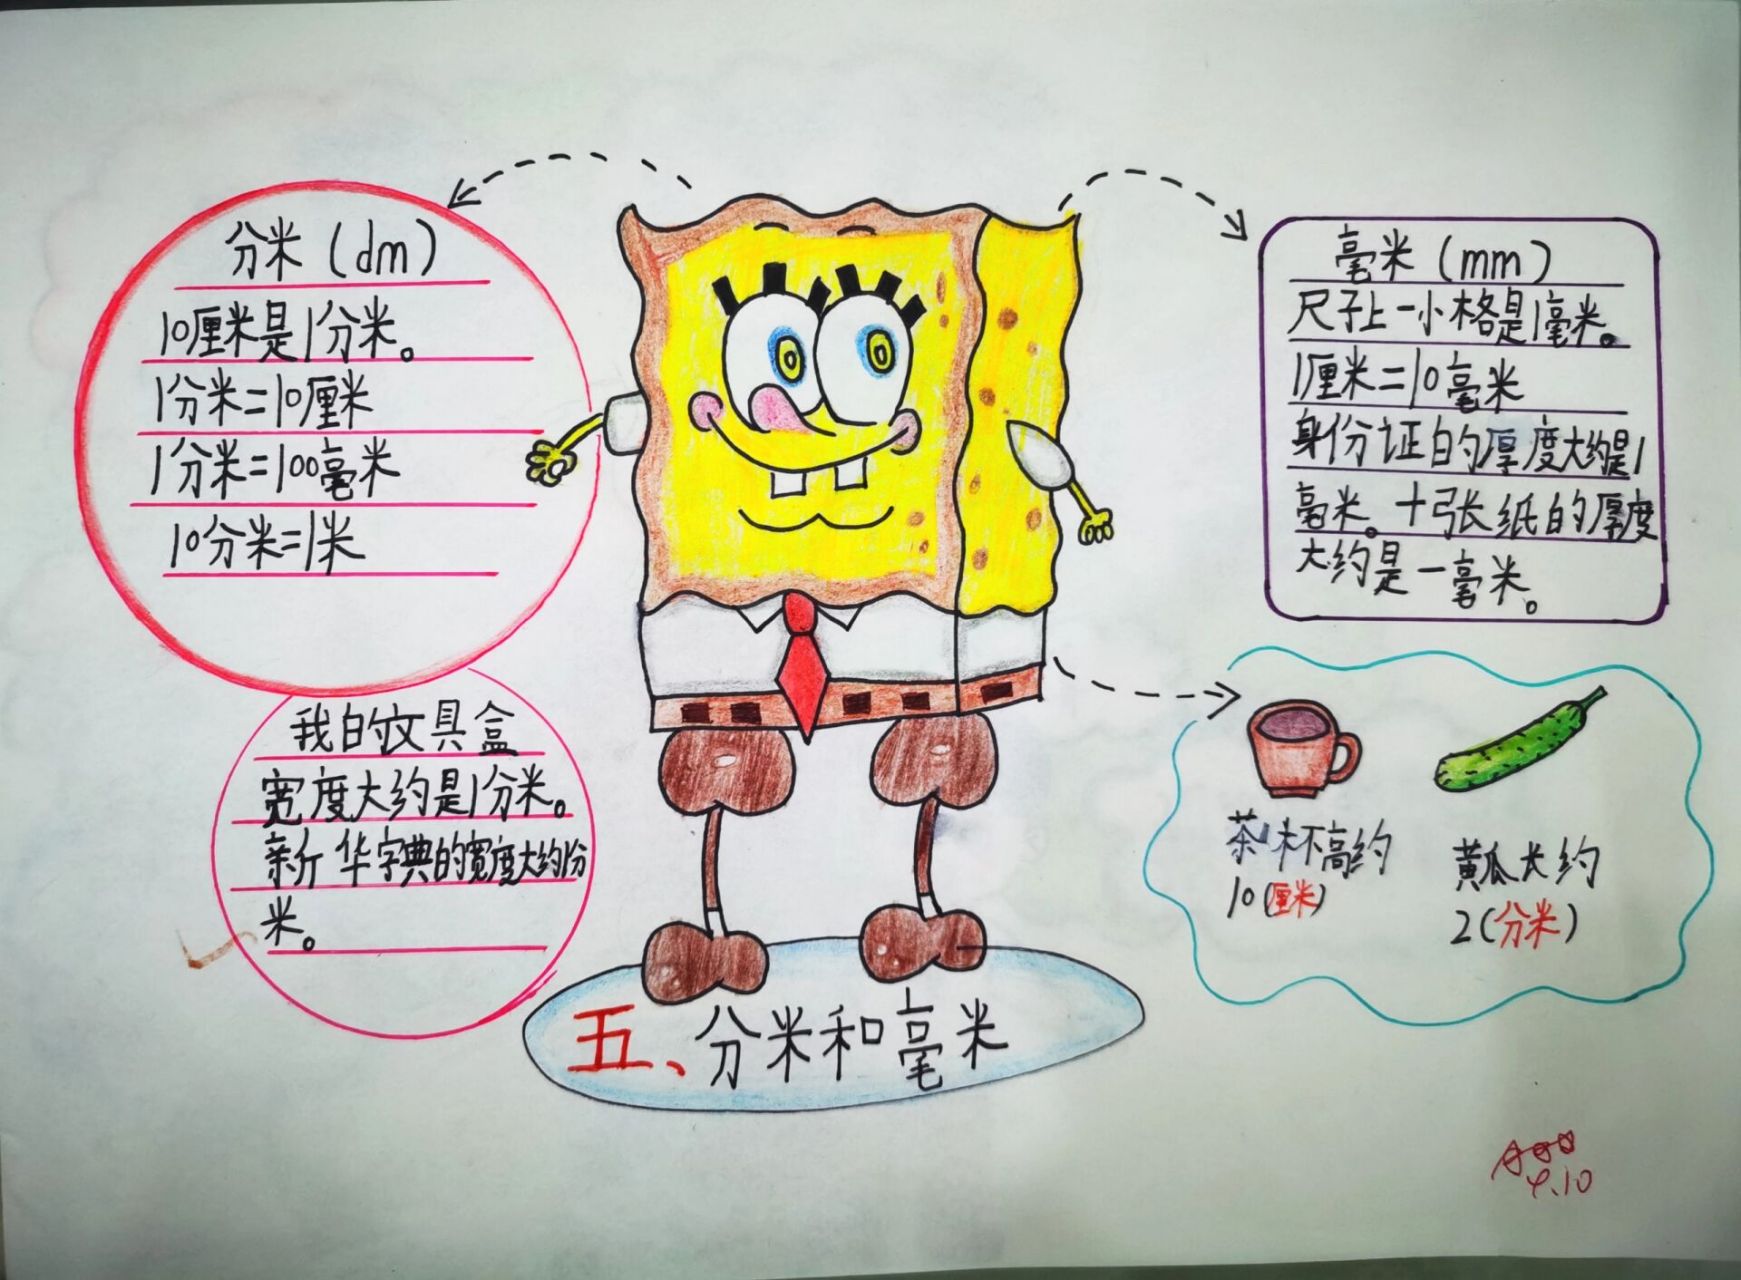 分米(dm)
10厘米是1分米。
1分米=10厘米
1分米=100毫米
10分米=1米
我的文具盒
宽度大约是1分米。
新华字典的宽度大约1分
米。
毫米(mm)
尺子上一小格是1毫米。
1厘米=10毫米
身份证的厚度大约是1
毫米。十张纸的厚度
大约是一毫米。
茶杯高约
10(厘米)
黄瓜长约
2(分米)
五、分米和毫米
4.10